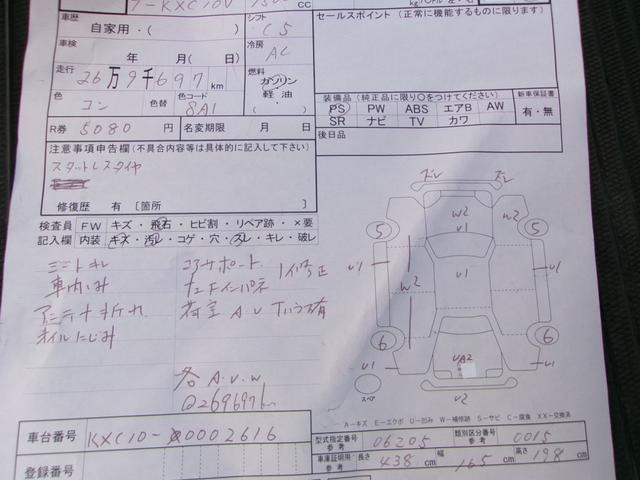 T-KXC10V 1500 CC
車歴
自家用・( )
シフト
C5
セールスポイント(正常に機能するものに限ります)
車検
年 月(日)
冷房
AC
走行
26万9千697km
燃料
ガソリン
軽油
色
コン
色替
色コード
8A1
装備品(純正品に限り〇をつけてください)
新車保証書
PS PW ABS エアB AW
SR ナビ TV カワ
有・無
R券 5080円 名変期限 月 日
後日品
注意事項申告欄(不具合内容等は具体的に記入して下さい)
スタットレスタイヤ
修復歴 有〔箇所 〕
検査員 FW キズ・飛石・ヒビ割・リペア跡・×要
記入欄 内装 キズ・汚レ・コゲ・穴・スレ・キレ・破レ
シートキレ
車内いみ
アンテナ折れ
オイルにじみ
コアサポート
荷室 A.U
各 A.U.W
269697k
ズレ ズレ
W2 W2
U1
5 5
U1 U1 U1
W2
6 6
U1 UA2 U1
スペア
U2
A-キズ E-エクボ U-凹み W-補修跡 S-サビ C-腐食 XX-交換済
車台番号 KXC10-0002616
型式指定番号 参考 06205 類別区分番号 参考 0015
登録番号
車庫証明用 参考 長さ 438cm 幅 165cm 高さ 198cm